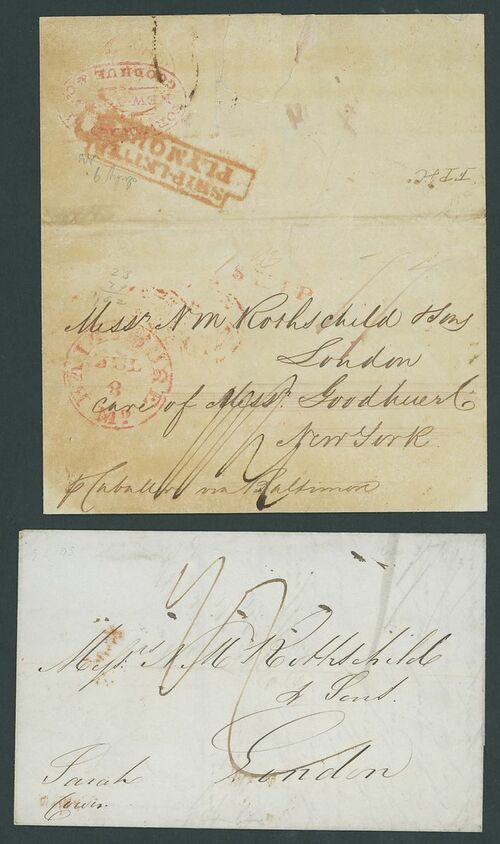 GOODHUE & CO
NEW-YORK
SHIP-LETTER
PLYMOUTH
6
SHIP
23
BALTIMORE
JUL
8
Md
Messrs N M Rothschild & Sons
London
care of Messrs Goodhue & Co
New York
p Caballero via Baltimore
Messrs N M Rothschild
& Sons.
London
Sarah